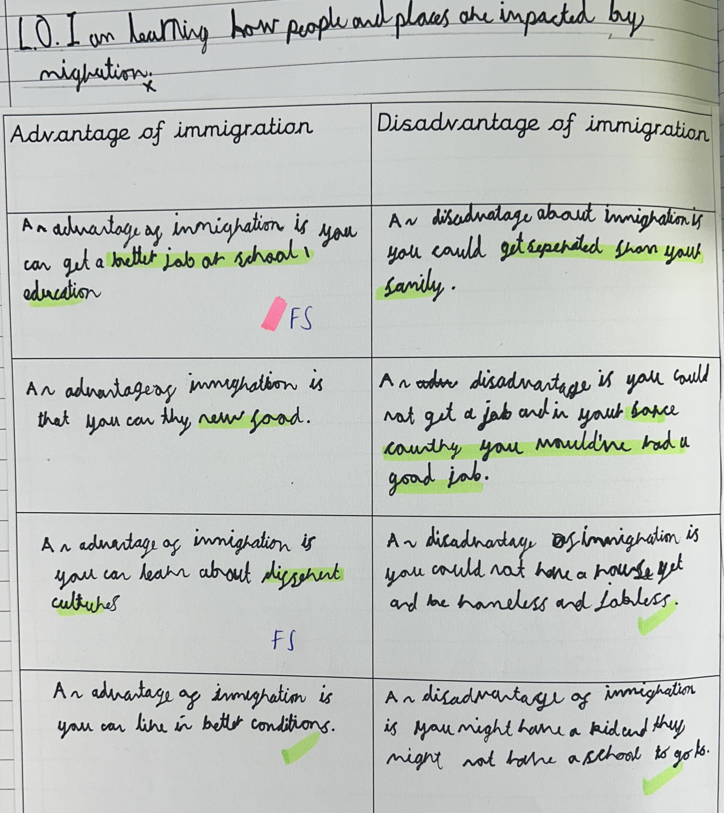 L.O. I am learning how people and places are impacted by
mighation.
x
Advantage of immigration
Disadvantage of immigration
An advantage of immighation is you
can get a better job or school,
education
FS
An disadvatage about immighation is
you could get seperated fhom your
family.
An advantage of immighation is
that you can thy new food.
An disadvantage is you could
not get a job and in your
counthy you would've had a
good job.
An advantage of immighation is
you can leahn about diffehent
cultuhes
FS
An disadvantage of immighation is
you could not have a house yet
and be homeless and jobless.
An advantage of immighation is
you can live in better conditions.
An disadvantage of immighation
is you might have a kid and they
might not have a school to go to.